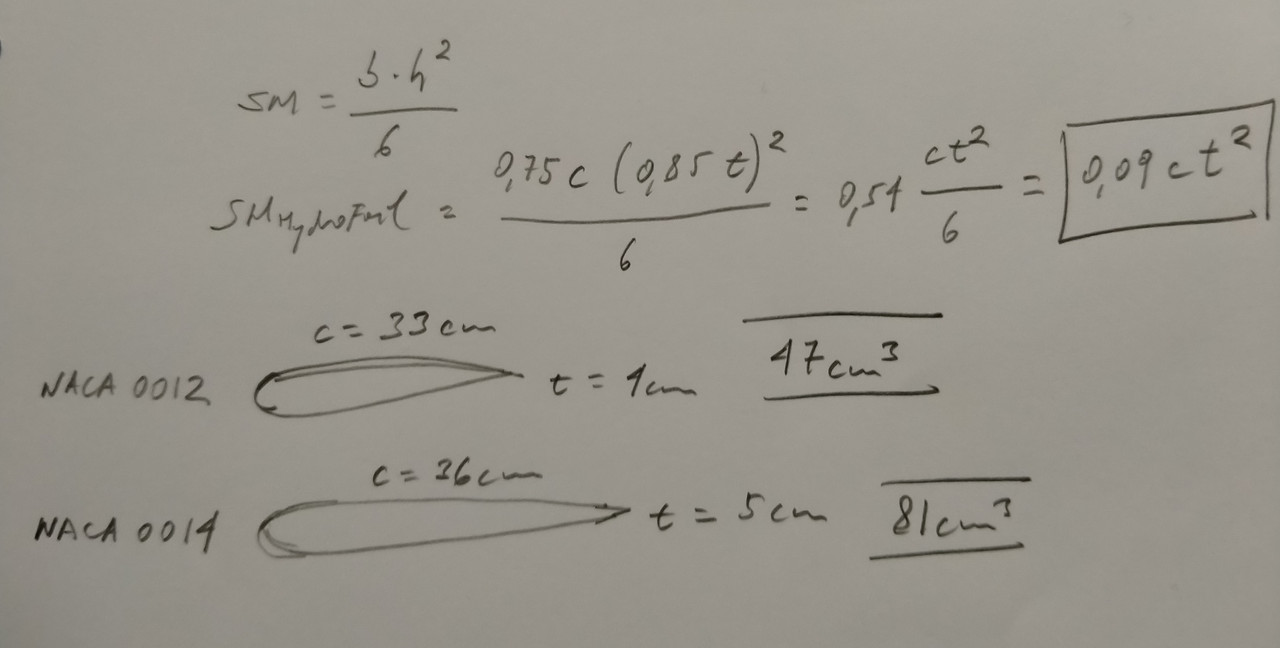 SM = b·h² / 6
SM Hydrofoil = 0,75c (0,85t)² / 6 = 0,54 ct² / 6 = 0,09ct²
c = 33cm
NACA 0012 t = 4cm 47cm³
c = 36cm
NACA 0014 t = 5cm 81cm³